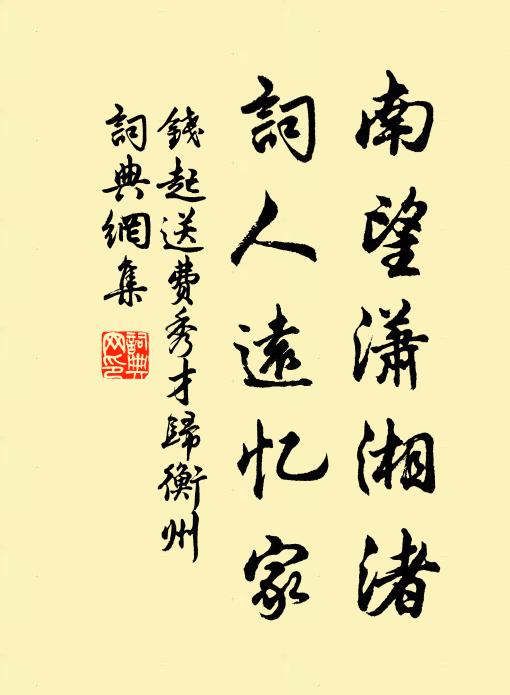 南望瀟湘渚
詞人遠忆家
錢起送費秀才歸衡州
詞典網集
詞典网印